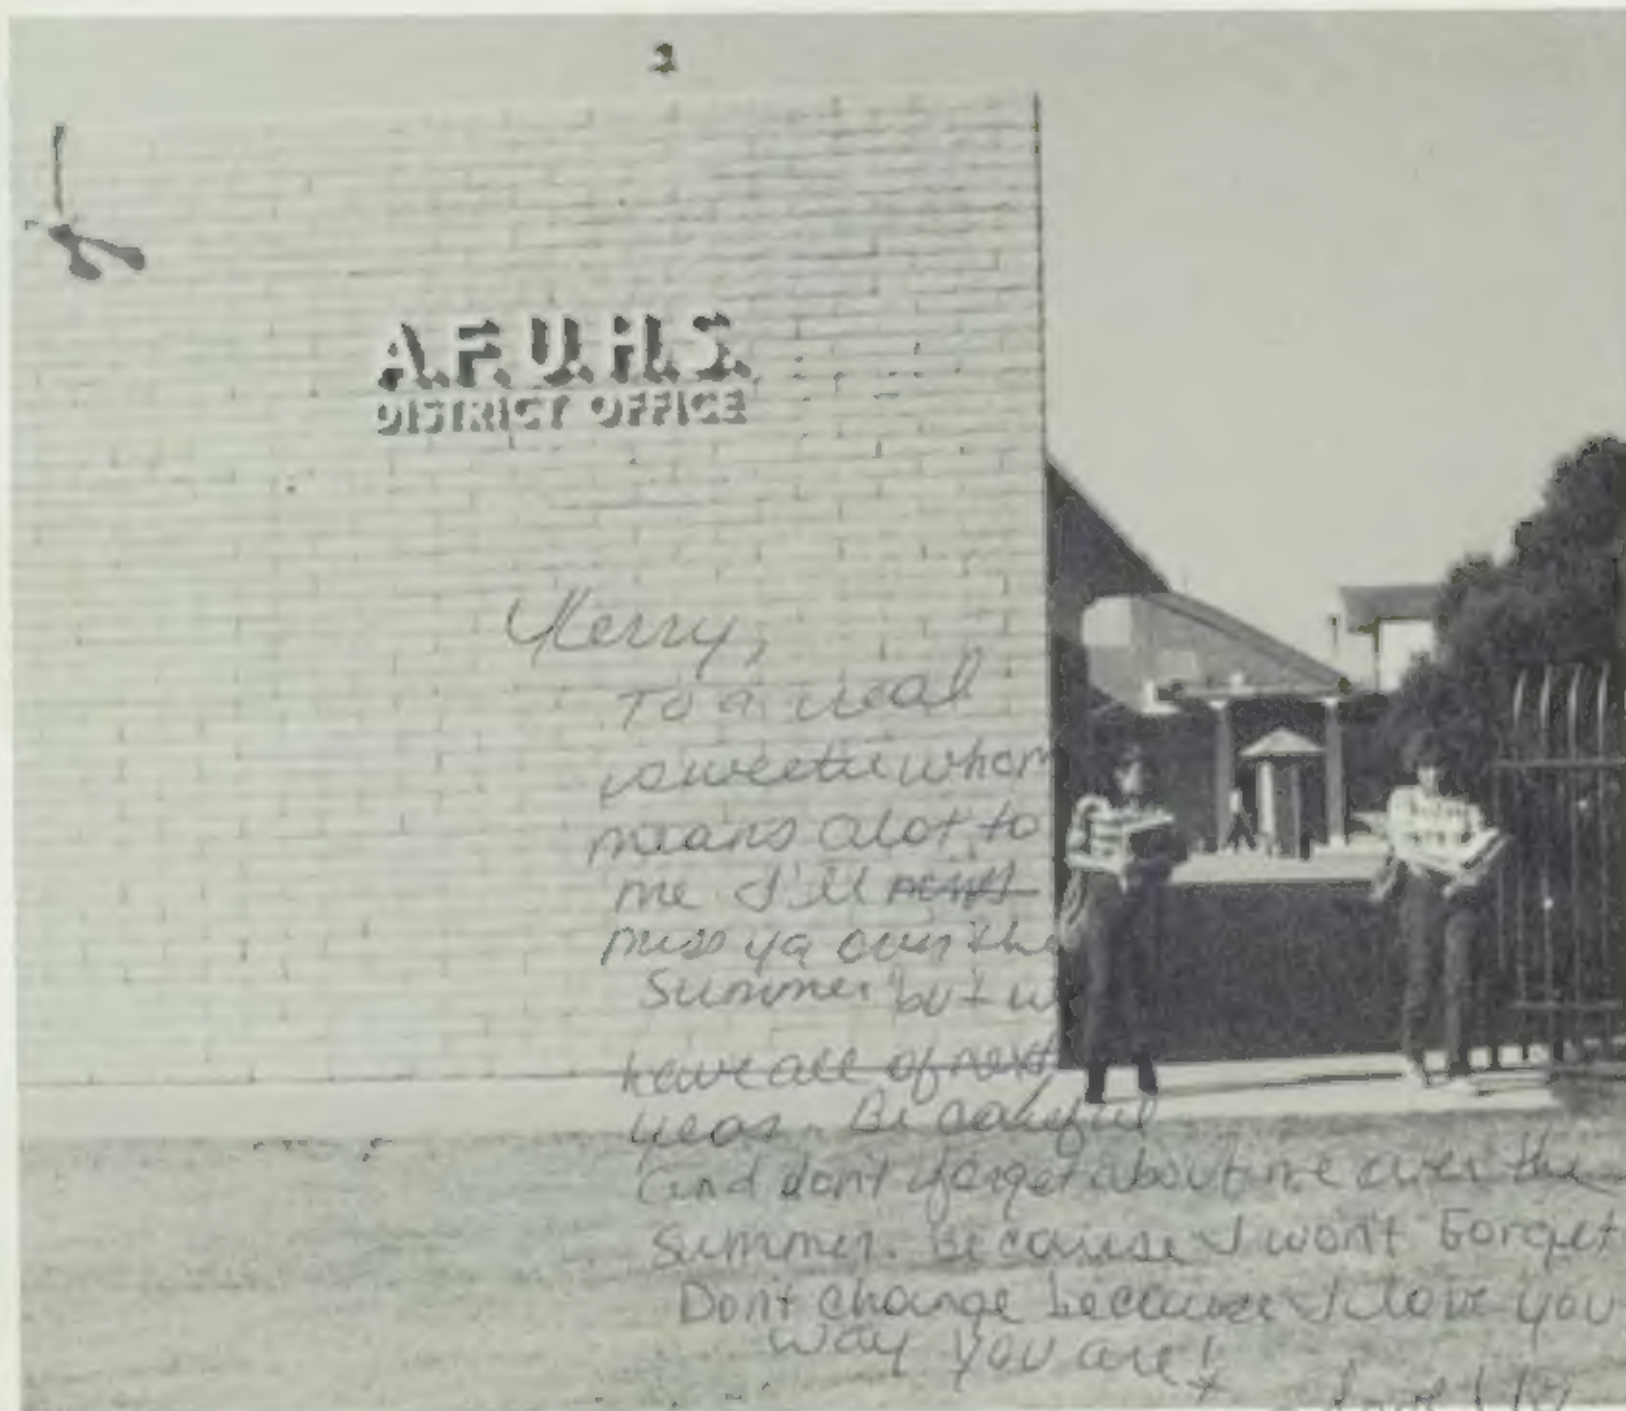 A.F.U.H.S.
DISTRICT OFFICE
Kerry,
To a real
sweetie whom
means alot to
me I'll
miss ya over the
Summer but w
have all of next
year. Be careful
and don't forget about me over the
summer. Because I won't Forget
Don't change because I love you
way you are!